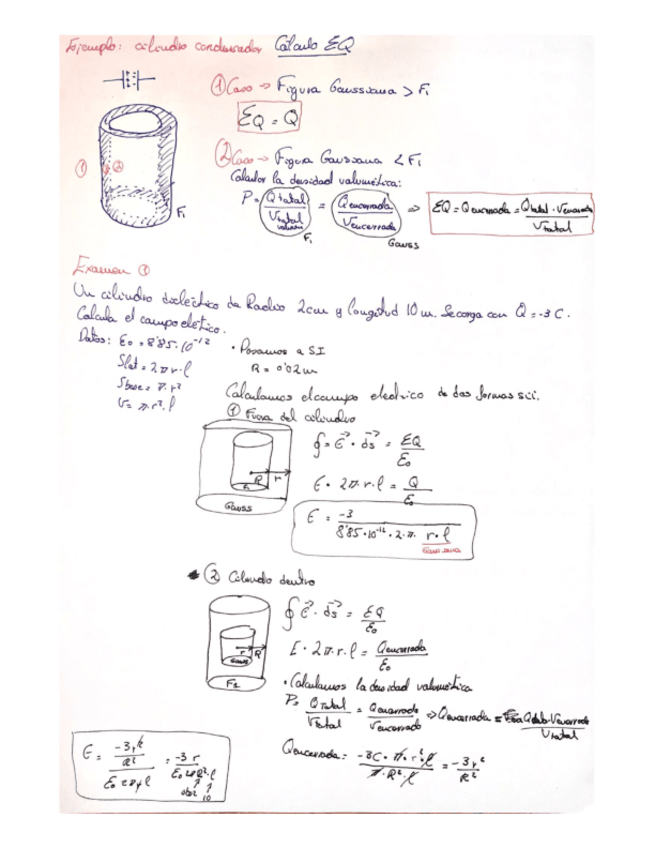 Ejemplo: cilindro condensador Cálculo ƸQ
① Caso → Figura Gaussiana > F₁
ƸQ = Q
② Caso → Figura Gaussiana < F₁
Calcular la densidad volumétrica:
P = Q total / V total volumen = Q encerrada / V encerrada ⇒ ƸQ = Q encerrada = Q total · V encerrada / V total
F₁ Gauss
① ②
F₁
Examen ①
Un cilindro dieléctrico de Radio 2cm y longitud 10 m. Se carga con Q = -3 C.
Calcula el campo eléctrico.
Datos: ε₀ = 8'85·10⁻¹²
S lat = 2π r · l
S base = π · r²
V = π · r² · l
· Pasamos a SI
R = 0'02 m
Calculamos el campo eléctrico de dos formas
① Fuera del cilindro
R r
Gauss
∮ = E⃗ · ds⃗ = ƸQ / ε₀
E · 2π · r · l = Q / ε₀
E = -3 / 8'85·10⁻¹² · 2 · π · r · l
Gaussiana
② Cilindro dentro
r R
Gauss
∮ E⃗ · ds⃗ = ƸQ / ε₀
E · 2π · r · l = Q encerrada / ε₀
· Calculamos la densidad volumétrica
P = Q total / V total = Q encerrada / V encerrada ⇒ Q encerrada = Q total · V encerrada / V total
Q encerrada = -3C · π · r² · l / π · R² · l = -3r² / R²
E = -3r² / R² / ε₀ 2π r l = -3 r / ε₀ 2π R² · l
0'02 10